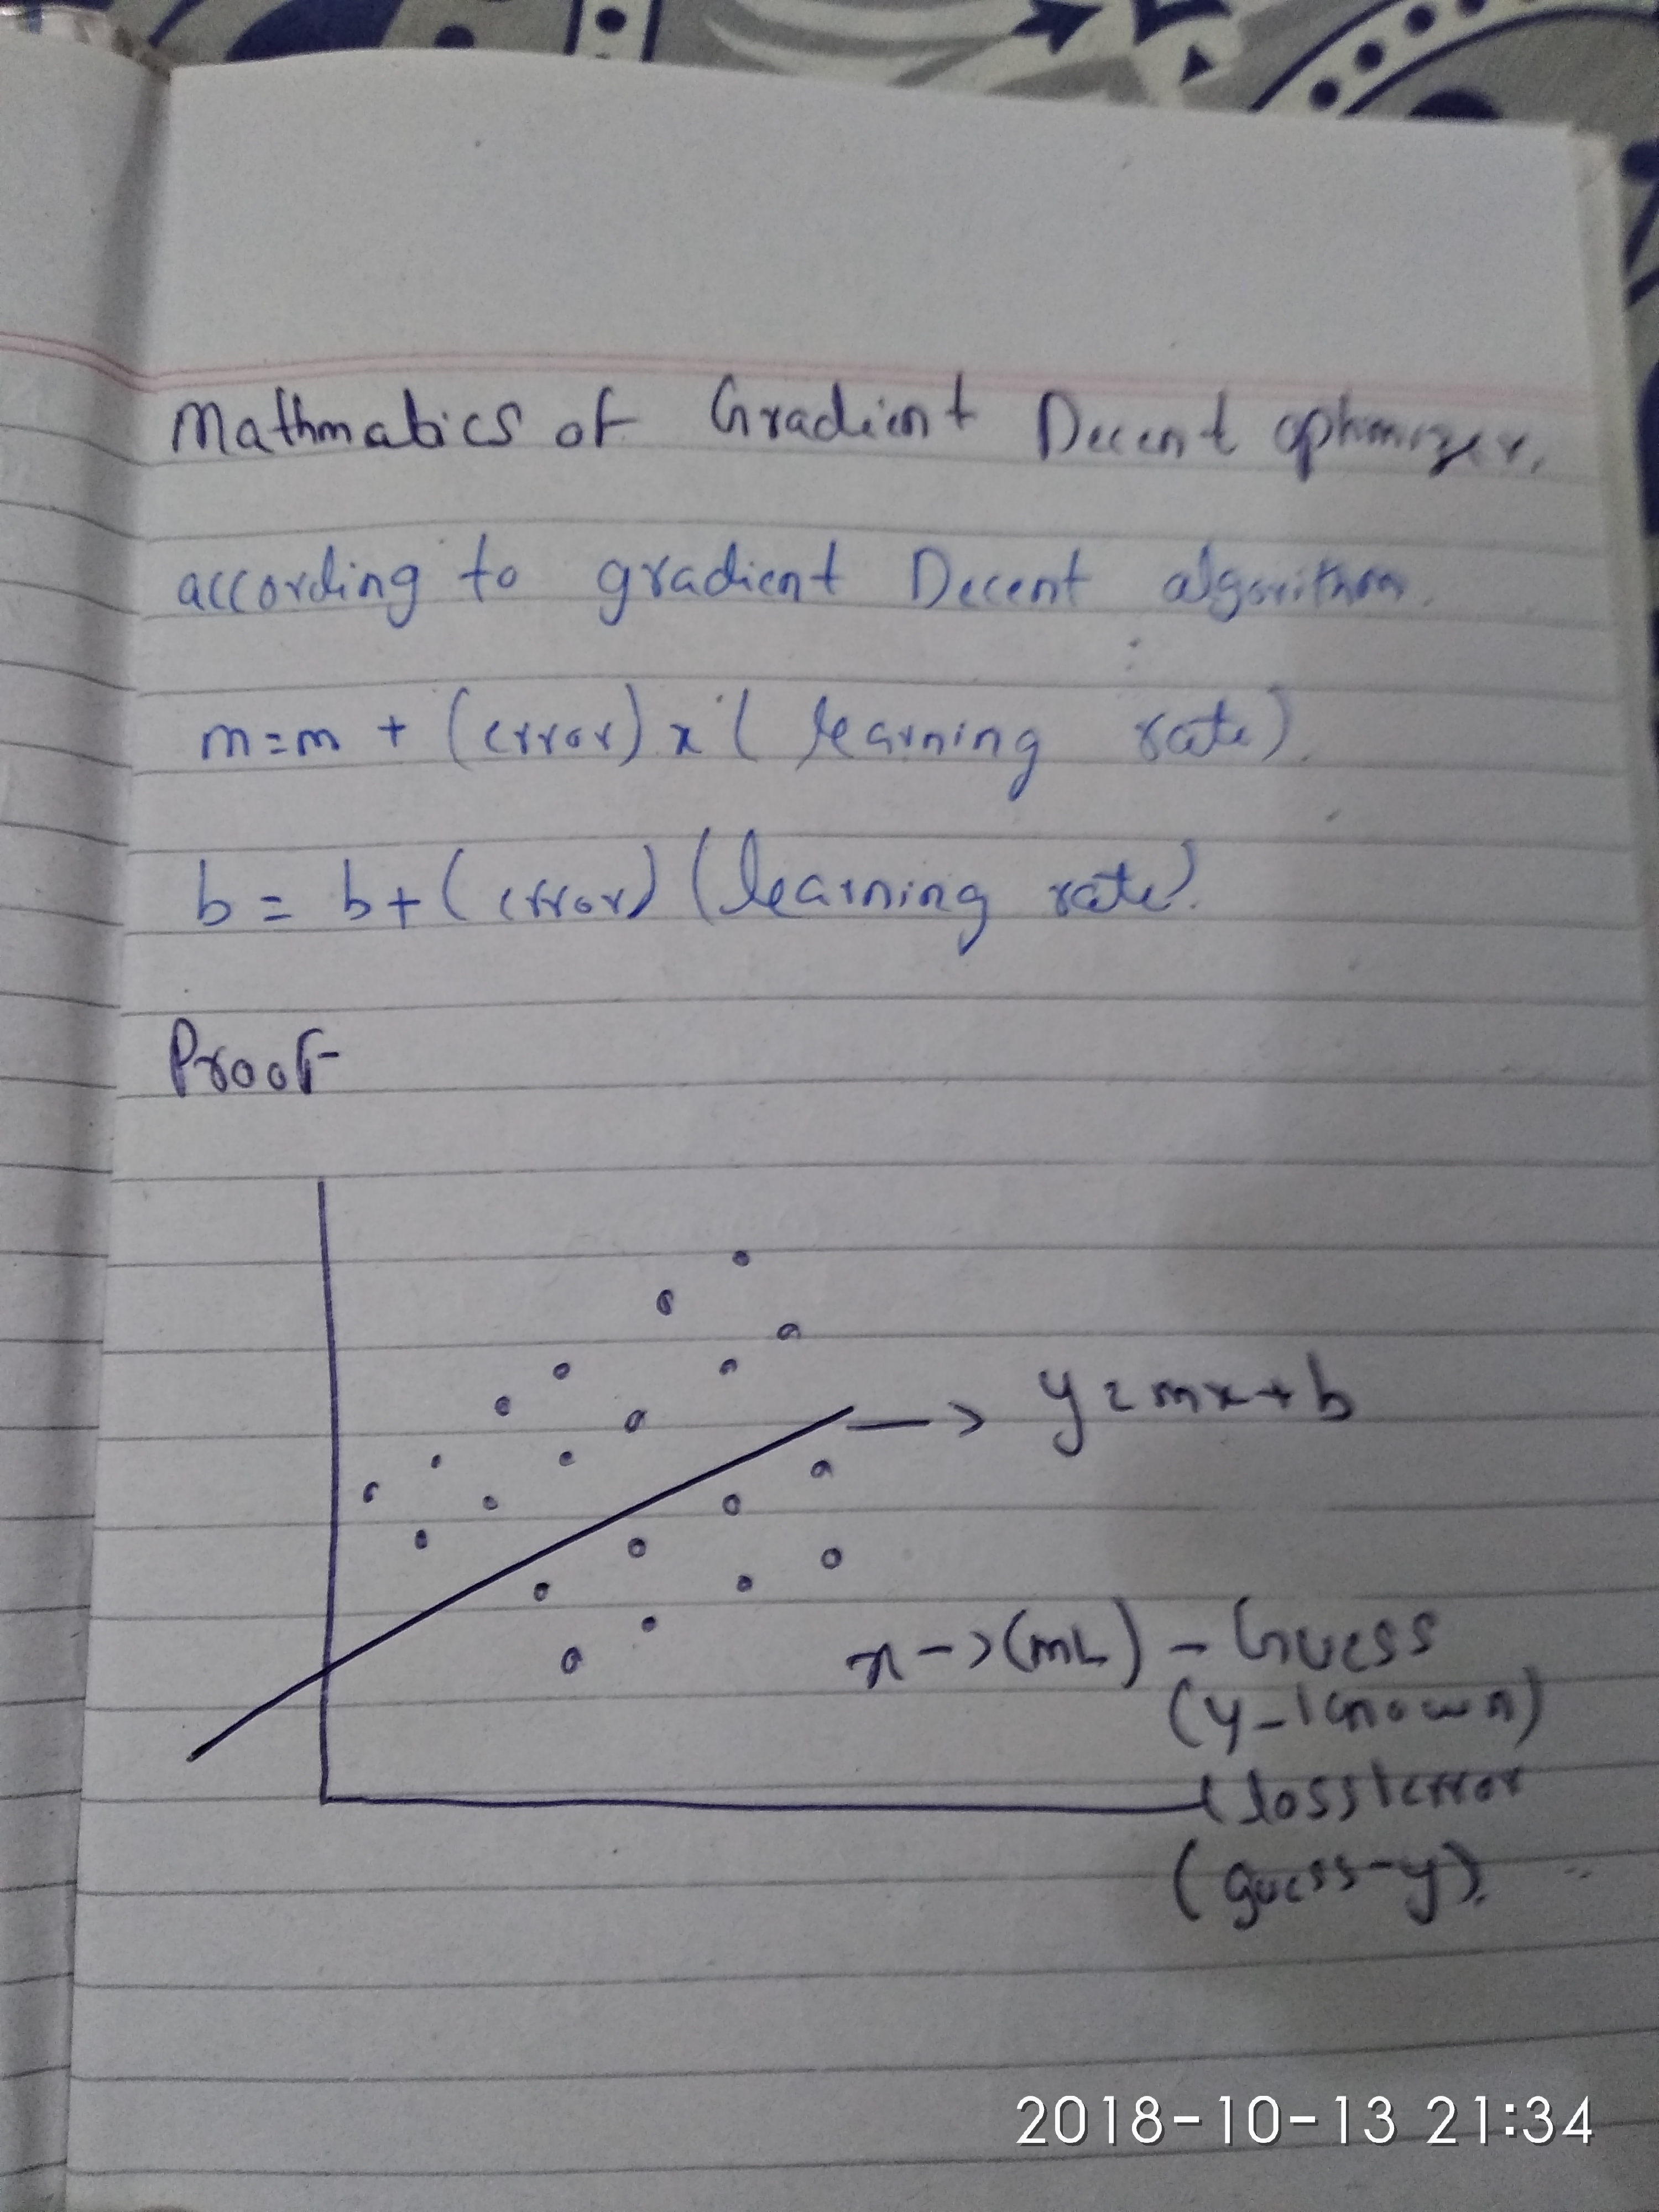 Mathmatics of Gradient Decent optimizer.
according to gradient Decent algorithm.
m=m + (error) x (learning rate).
b = b+(error) (learning rate).
Proof
y=mx+b
x->(mL) - Guess
(y-known)
(loss|error
(guess-y).
2018-10-13 21:34